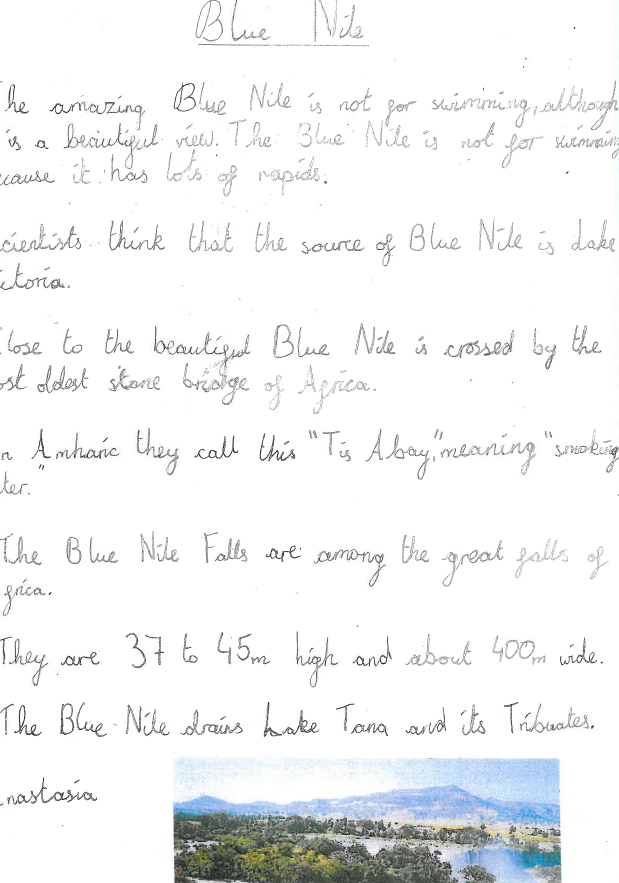 Blue Nile
he amazing Blue Nile is not for swimming, although
is a beautiful view. The Blue Nile is not for swimming
cause it has lots of rapids.
cientists think that the source of Blue Nile is Lake
ictoria.
lose to the beautiful Blue Nile is crossed by the
ost oldest stone bridge of Africa.
n Amharic they call this "Tis Abay," meaning "smoking
ter."
The Blue Nile Falls are among the great falls of
frica.
They are 37 to 45m high and about 400m wide.
The Blue Nile drains Lake Tana and its Tribuates.
nastasia